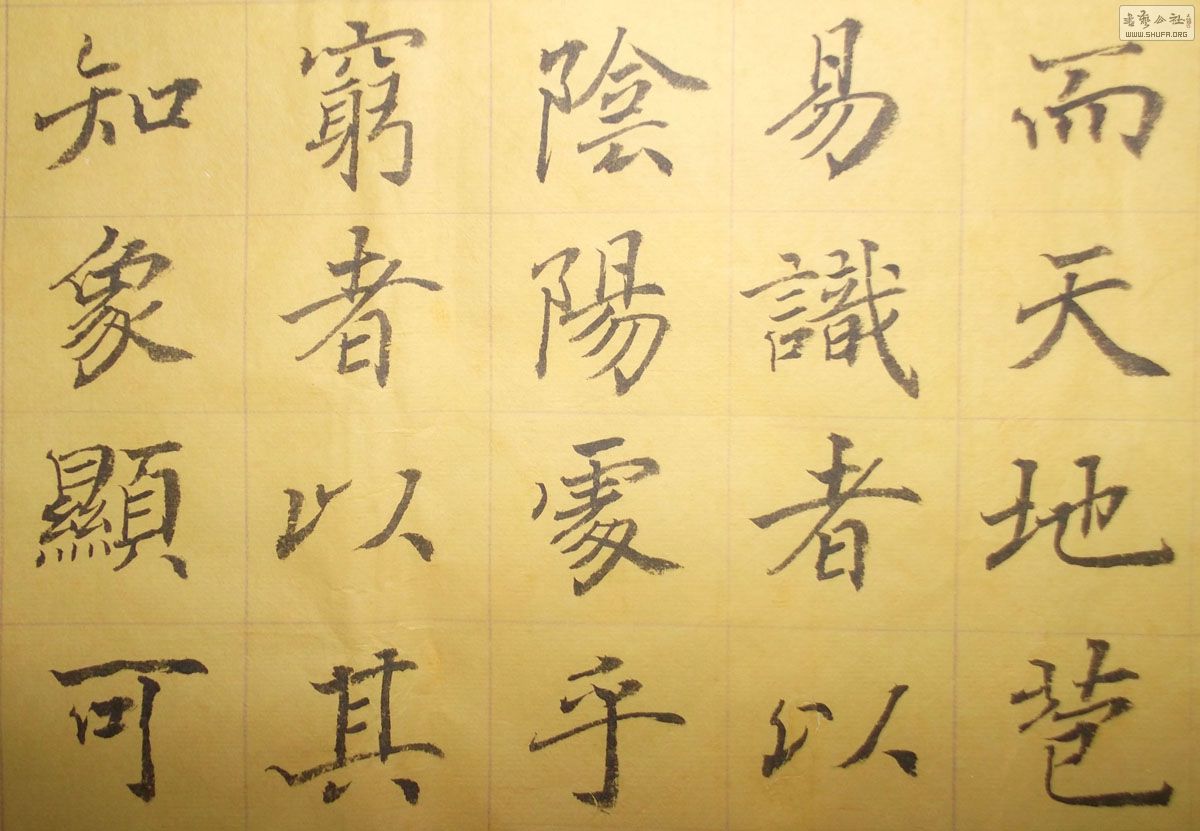 而天地苞
易識者以
陰陽處乎
窮者以其
知象顯可
公社
WWW.SHUFA.ORG